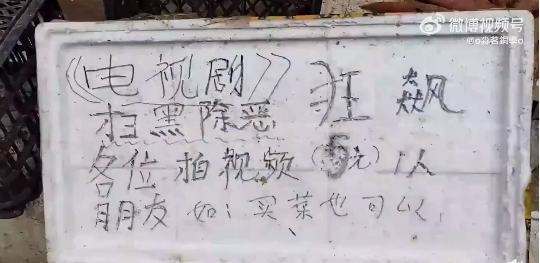 微博视频号
《电视剧》 狂飙
扫黑除恶
各位拍视频(5元)1人
朋友 如：买菜也可以